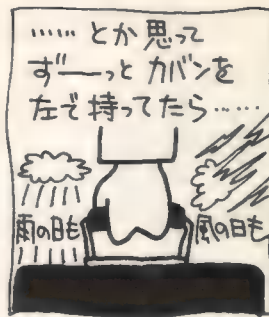 …… とか思って
ず――っとカバンを
左で持ってたら……
雨の日も
風の日も